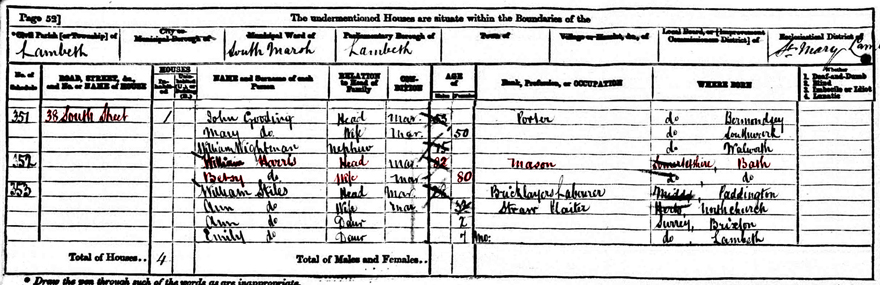 Page 52] The undermentioned Houses are situate within the Boundaries of the
*Civil Parish [or Township] of City or Municipal Borough of Municipal Ward of Parliamentary Borough of Town of Village or Hamlet, &c., of Local Board, or [Improvement Commissioners District] of Ecclesiastical District of
Lambeth South Marsh Lambeth St Mary
No. of Schedule ROAD, STREET, &c., and No. or NAME of HOUSE HOUSES NAME and Surname of each Person RELATION to Head of Family CONDITION AGE of Rank, Profession, or OCCUPATION WHERE BORN Whether
1. Deaf-and-Dumb
2. Blind
3. Imbecile or Idiot
4. Lunatic
Males Females
351 38 South Street 1 John Gooding Head Mar. 53 Porter do Bermondsey
Mary do Wife Mar. 50 do Southwark
William Wightman Nephew 15 do Walworth
352 William Harris Head Mar 82 Mason Somersetshire, Bath
Betsy do Wife Mar 80 do do
353 William Stiles Head Mar. Bricklayers Labourer Middx Paddington
Ann do Wife Mar. Straw Plaiter Herts Northchurch
Ann do Daur 2 Surrey, Brixton
Emily do Daur 7 mo: do Lambeth
Total of Houses.. 4 Total of Males and Females..
* Draw the pen through such of the words as are inappropriate.